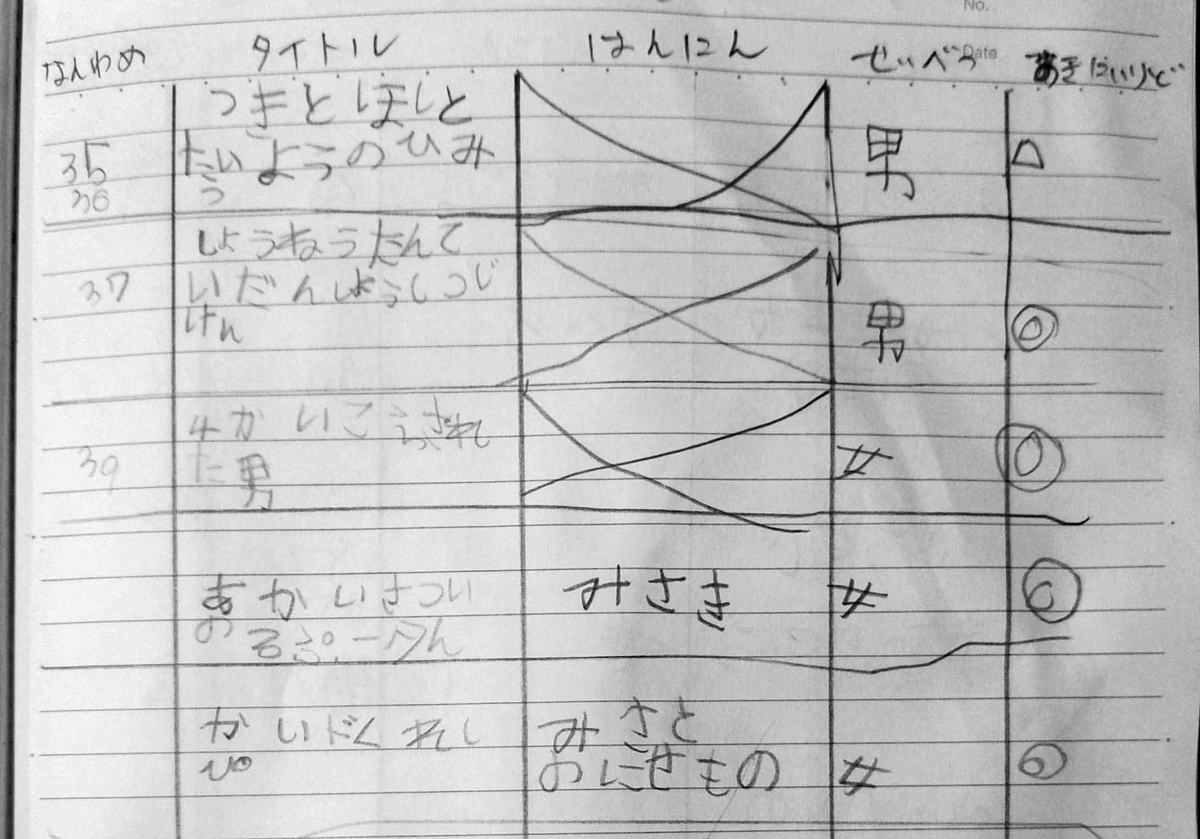 No.
Date
なんわめ タイトル はんにん せいべつ
35 つきとほしと 男 △
36 たいようのひみ
つ
37 しょうねんたんて 男 ◎
いだんしょうしつじ
けん
39 4かいころされ 女 ◎
た男
あかいさつい みさき 女 ◎
のるぷーたん
かいどくれし みさと 女 ◎
ぴ のにせもの